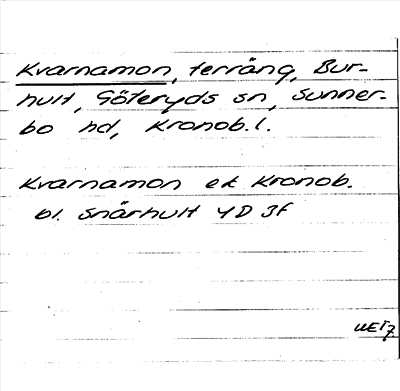 Kvarnamon, terräng, Bur-
hult, Göteryds sn, Sunner-
bo hd, Kronob. l.
Kvarnamon ek Kronob.
bl. Snärhult 4D 3f